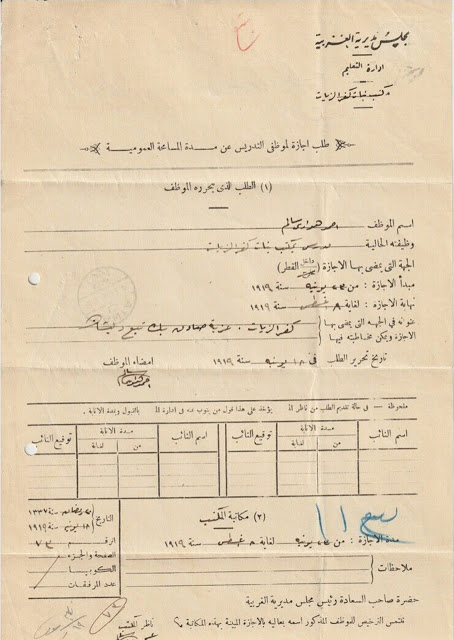 مجلس مديرية الغربية
ادارة التعليم
مكتب بنات كفر الزيات
طلب اجازة لموظفى التدريس عن مدة المسامحة العمومية
(١) الطلب الذى يحرره الموظف
اسم الموظف احمد هنداوى سالم
وظيفته الحالية مدرس بمكتب بنات كفر الزيات
الجهة التى يمضى بها الاجازة (داخل القطر)
مبدأ الاجازة : من ٢٣ يونيه سنة ١٩١٩
نهاية الاجازة : لغاية ٨ اغسطس سنة ١٩١٩
عنوانه فى الجهة التى يمضى بها
الاجازة ويمكن مخاطبته فيها
كفر الزيات
تاريخ تحرير الطلب فى ١٨ يونيه سنة ١٩١٩ امضاء الموظف
ملحوظة — فى حالة تقديم الطلب من ناظر الـ يؤخذ على هذا قول من ينوب عنه فى ادارة الـ بالقبول ومدة الانابة
اسم النائب مدة الانابة من لغاية توقيع النائب اسم النائب مدة الانابة من لغاية توقيع النائب
(٢) مكاتبة المكتب
مدة الاجازة : من ٢٣ يونيه لغاية ٨ اغسطس سنة ١٩١٩
ملاحظات
التاريخ رمضان سنة ١٣٣٧
١٨ يونيه سنة ١٩١٩
الرقم ٧٣
الصفحة والجزء
الكوبيا
عدد المرفقات
حضرة صاحب السعادة رئيس مجلس مديرية الغربية
نلتمس الترخيص للموظف المذكور اسمه بعاليه بالاجازة المبينة بهذه المكاتبة
ناظر المكتب